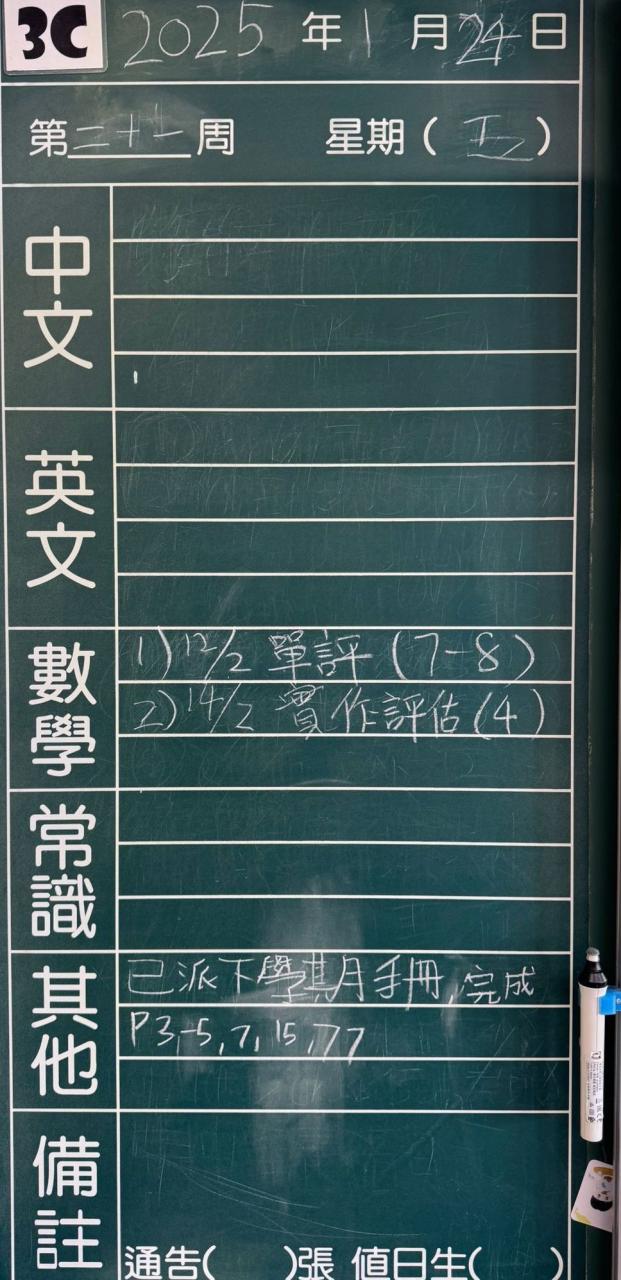 3C 2025 年 1 月 24 日
第二十一周 星期(五)
中文
英文
數學
1) 12/2 單評 (7-8)
2) 14/2 實作評估 (4)
常識
其他
已派下學期手冊, 完成
P3-5, 7, 15, 77
備註
通告( )張 值日生( )